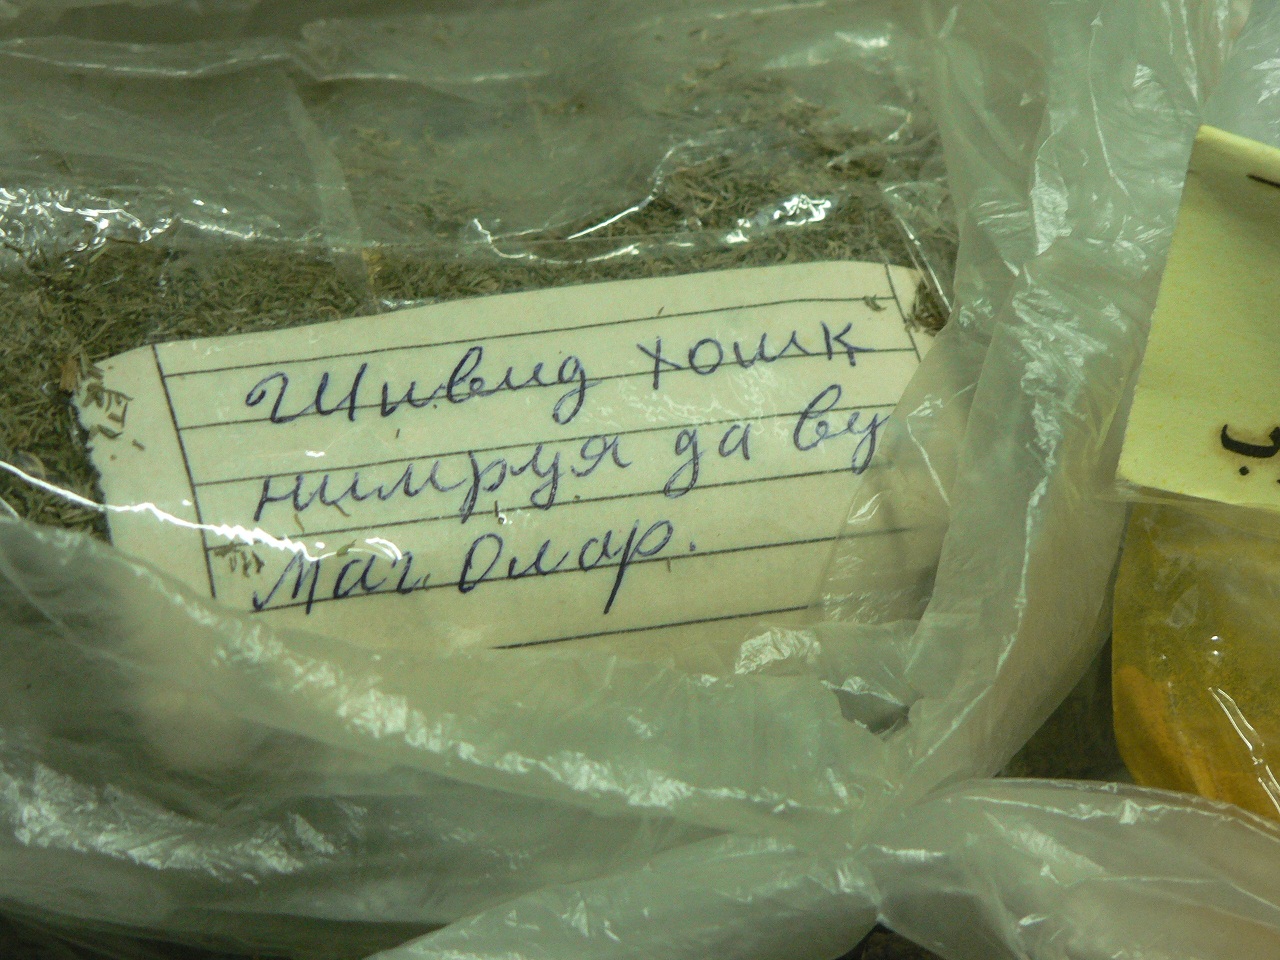 Шивид хошк
нимруя да ву
маг. Олар.
ب